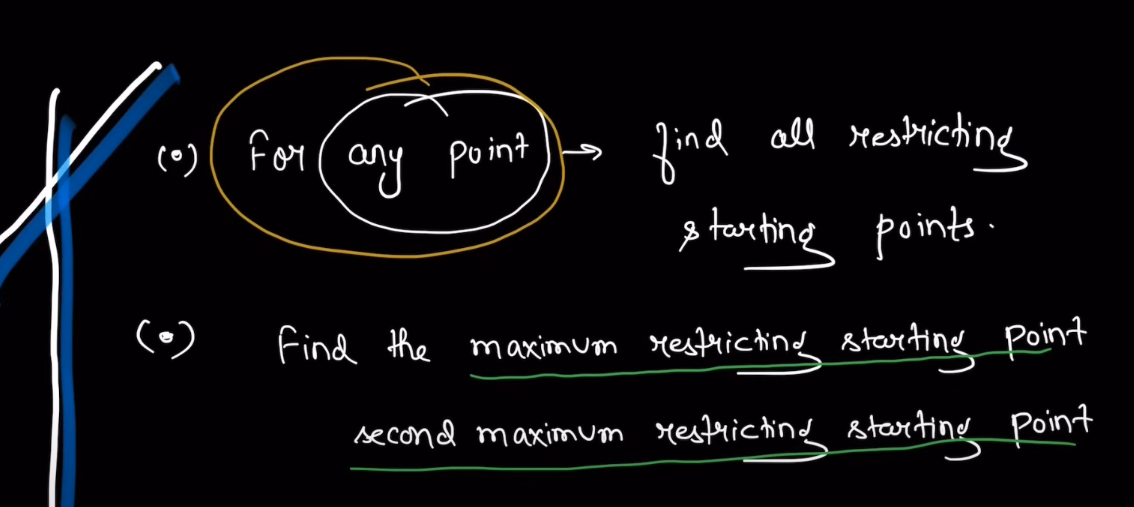 (•) For any point → find all restricting
starting points.
(•) Find the maximum restricting starting point
second maximum restricting starting point